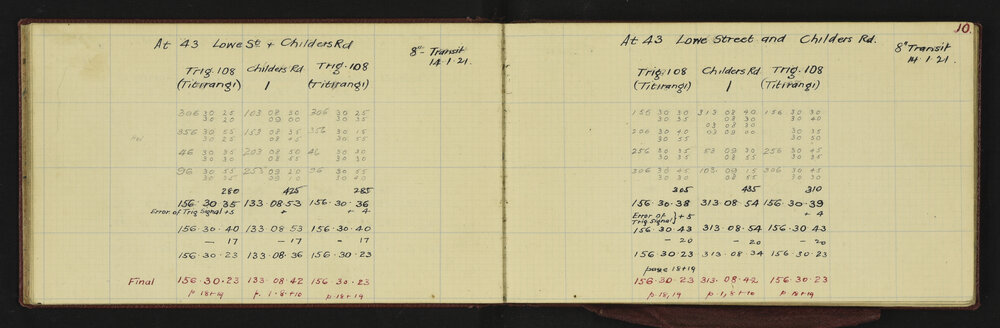 At 43 Lowe St + Childers Rd
8"- Transit
14.1.21.
Trig. 108 Childers Rd Trig. 108
(Titirangi) 1 (Titirangi)
306 30 25 103 08 50 306 30 25
30 20 09 00 30 35
356 30 55 153 08 35 356 30 15
30 25 08 45 30 55
46 30 35 203 08 50 46 30 30
30 35 08 55 30 30
96 30 55 253 09 20 96 30 55
30 35 09 10 30 40
280 425 285
156.30.35 133.08.53 156.30.36
Error of Trig Signal +5 + + 4
156.30.40 133.08.53 156.30.40
- 17 - 17 - 17
156.30.23 133.08.36 156.30.23
Final 156.30.23 133.08.42 156.30.23
p 18+19 p. 1.8+10 p 18+19
10.
At 43 Lowe Street and Childers Rd.
8" Transit
14.1.21.
Trig. 108 Childers Rd Trig. 108
(Titirangi) 1 (Titirangi)
156 30 30 313 08 40 156 30 30
30 35 08 30 30 40
03 08 30
206 30 40 03 09 00 30 35
30 55 30 50
256 30 35 53 09 30 256 30 45
30 30 08 55 30 35
306 30 45 103 09 15 306 30 45
30 35 08 55 30 30
305 435 310
156.30.38 313.08.54 156.30.39
Error of Trig Signal } +5 + 4
156.30.43 313.08.54 156.30.43
- 20 - 20 - 20
156.30.23 313.08.34 156.30.23
page 18+19
156.30.23 313.08.42 156.30.23
p 18,19 p. 1,8+10 p. 18+19